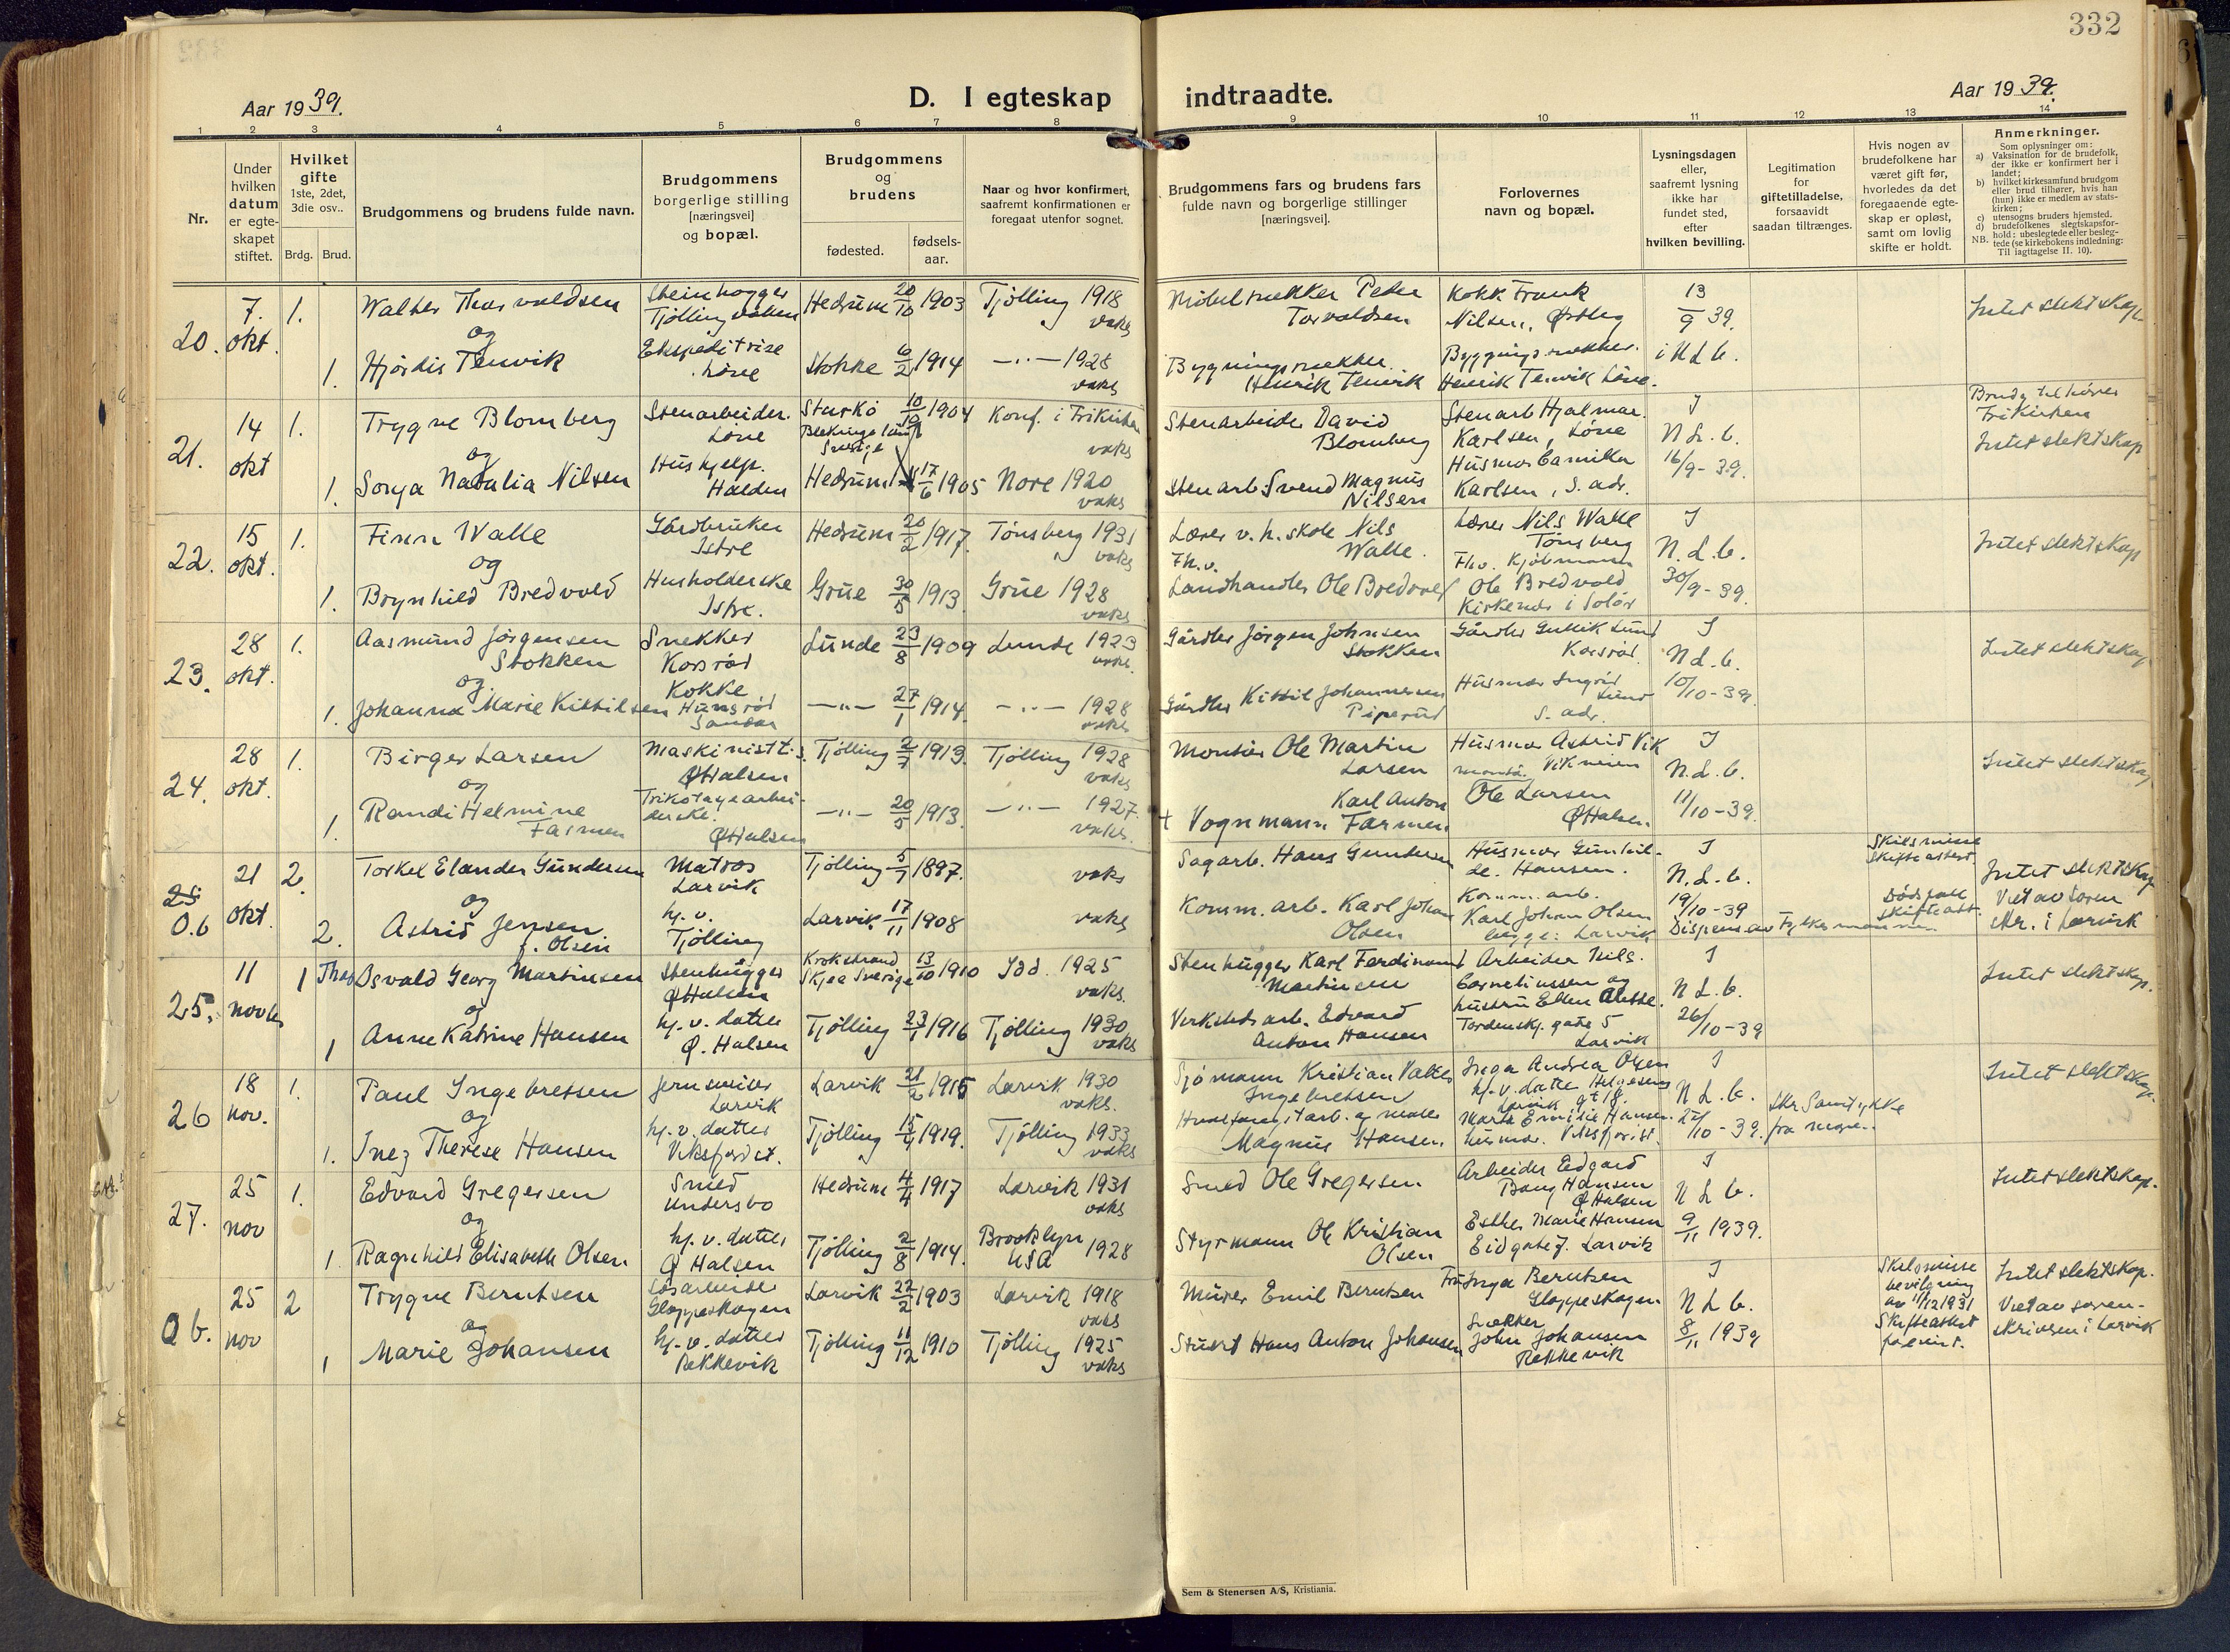 332
Aar 1939.
D. I egteskap indtraadte.
Aar 1939.
1 2 3 4 5 6 7 8 9 10 11 12 13 14
Nr.
Under hvilken datum er egteskapet stiftet.
Hvilket gifte 1ste, 2det, 3die osv..
Brdg. Brud.
Brudgommens og brudens fulde navn.
Brudgommens borgerlige stilling [næringsvei] og bopæl.
Brudgommens og brudens
fødested. fødselsaar.
Naar og hvor konfirmert, saafremt konfirmationen er foregaat utenfor sognet.
Brudgommens fars og brudens fars fulde navn og borgerlige stillinger [næringsvei].
Forlovernes navn og bopæl.
Lysningsdagen eller, saafremt lysning ikke har fundet sted, efter hvilken bevilling.
Legitimation for giftetilladelse, forsaavidt saadan tiltrænges.
Hvis nogen av brudefolkene har været gift før, hvorledes da det foregaaende egteskap er opløst, samt om lovlig skifte er holdt.
Anmerkninger.
Som oplysninger om:
a) Vaksination for de brudefolk, der ikke er konfirmert her i landet;
b) hvilket kirkesamfund brudgom eller brud tilhører, hvis han (hun) ikke er medlem av statskirken;
c) utensogns bruders hjemsted.
d) brudefolkenes slegtskapsforhold: ubeslegtede eller beslegtede (se kirkebokens indledning:
NB. Til iagttagelse II. 10).
20. 7. okt. 1. Walter Thorvaldsen Steinhogger Tjøllingvollen Hedrum 20/10 1903 Tjølling 1918 vaks Møbelsnekker Peder Torvaldsen Kokk Frank Nilsen, Østby 13/9 39. Intet slektskap
og
1. Hjördis Tenvik Ekspeditrise Løve Stokke 6/2 1914 —"— 1928 vaks Bygningssnekker Henrik Tenvik Bygningssnekker Henrik Tenvik Løve. i N L b.
21. 14 okt 1. Trygve Blomberg Stenarbeider. Løve Sturkö Blekinge län Sverige 10/12 1904 Konf. i Frikirken vaks Stenarbeider David Blomberg Stenarb Hjalmar Karlsen, Løve I N L. b. Brudg tilhører Frikirken Intet slektskap
og
1. Sonja Natalia Nilsen Hushjelp. Halden Hedrum 17/6 1905 Nore 1920 vaks Stenarb. Svend Magnus Nilsen Husmor Camilla Karlsen, S. adr. 16/9-39.
22. 15 okt. 1. Finn Walle Gårdbruker Istre Hedrum 20/2 1917. Tønsberg 1931 vaks Lærer v. h. skole Nils Walle. Lærer Nils Walle Tønsberg I N. L. b. Intet slektskap
og
1. Brynhild Bredvold Husholderske Istre. Grue 30/5 1913. Grue 1928 vaks Fh.v. Landhandler Ole Bredvold Fhv. Kjøbmann Ole Bredvold Kirkenær i Solør 30/9-39.
23. 28 okt. 1. Aasmund Jørgensen Stokken Snekker Korsrød Lunde 23/8 1909 Lunde 1923 vaks. Gårdbr Jørgen Johnsen Stokken Gårdbr Gullik Lund Korsrød. I N L. b. Intet slektskap
og
1. Johanna Marie Kittilsen Kokke Hunsrød Sandar —"— 27/1 1914. —"— 1928 vaks Gårdbr Kittil Johannesen Piperud Husmor Ingrid Lund S. adr. 10/10-39.
24. 28 okt. 1. Birger Larsen Maskinist t.s. Ø Halsen Tjølling 2/7 1913. Tjølling 1928 vaks Montør Ole Martin Larsen Husmor Astrid Vik I N. L. b. Intet slektskap
og
1. Randi Helmine Farmen Trikotagearbeiderske. Ø Halsen —"— 20/5 1913. —"— 1927. vaks. † Vognmann Karl Anton Farmen Ole Larsen Ø Halsen. 11/10-39.
25. O.b 21 okt. 2. Torkel Elander Gundersen Matros Larvik Tjølling 5/7 1897. vaks Sagarb. Hans Gundersen Husmor Gunhilde. Hansen. I N. L. b. Skilsmisse Skifteattest Intet slektskap
og
2. Astrid Jensen f. Olsen hj. v. Tjølling Larvik 17/11 1908 vaks Komm. arb. Karl Johan Olsen Komm. arb. Karl Johan Olsen begge: Larvik 19/10-39 Dispens. av Fylkesmannen Dødsfall skifteatt. Viet av soren skr. i Larvik
25. 11 novbr 1 Thor Osvald Georg Martinsen Stenhugger Ø Halsen Krokstrand Skjee Sverige 13/10 1910 Idd. 1925 vaks. Stenhugger Karl Ferdinand Martinsen Arbeider Nils. Corneliussen og hustru Ellen I N L. b. Intet slektskap.
og
1 Anne Katrine Hansen hj. v. datter Ø. Halsen Tjølling 23/1 1916 Tjølling 1930 vaks Verkstedsarb. Edvard Anton Hansen Tordenskj. gate 5 Larvik 26/10-39
26 18 nov. 1. Paul Ingebretsen Jernsmier Larvik Larvik 21/2 1915 Larvik 1930 vaks. Sjømann Kristian Valter Ingebretsen Inga Andrea Olsen hj. v. datter Helgesens gt 18. Larvik I N L. b. Skr Samtykke fra moren.. Intet slektskap.
og
1. Inez Therese Hansen hj. v. datter Viksfjord. Tjølling 15/4 1919. Tjølling 1933 vaks Hvalfangstarb. og maler Magnus Hansen Marta Emilie Hansen. husmor. Viksfjord. 25/10-39.
27. 25 nov 1. Edvard Gregersen Smed Undersbo Hedrum 4/4 1917 Larvik 1931 vaks Smed Ole Gregersen Arbeider Edgard Bang Hansen Ø Halsen I N L b. Intet slektskap.
og
1. Ragnhild Elisabeth Olsen hj. v. datter Ø Halsen Tjølling 2/8 1914. Brooklyn USA 1928 Styrmann Ole Kristian Olsen Esther Marie Hansen Eidgate 7. Larvik 9/11 1939.
O b. 25 nov 2 Trygve Berntsen Løsarbeider Gloppeskogen Larvik 22/2 1903 Larvik 1918 vaks Murer Emil Berntsen Fru Inga Berntsen Gloppeskogen I N L b. Skilsmisse bevilgning av 11/12 1931 Skifteattest Intet slektskap.
og
1 Marie Johansen hj. v. datter Rekkevik Tjølling 11/12 1910 Tjølling 1925 vaks Stuert Hans Anton Johansen Snekker John Johansen Rekkevik 8/11 1939 Viet av sorenskriveren i Larvik
Sem & Stenersen A/S, Kristiania.